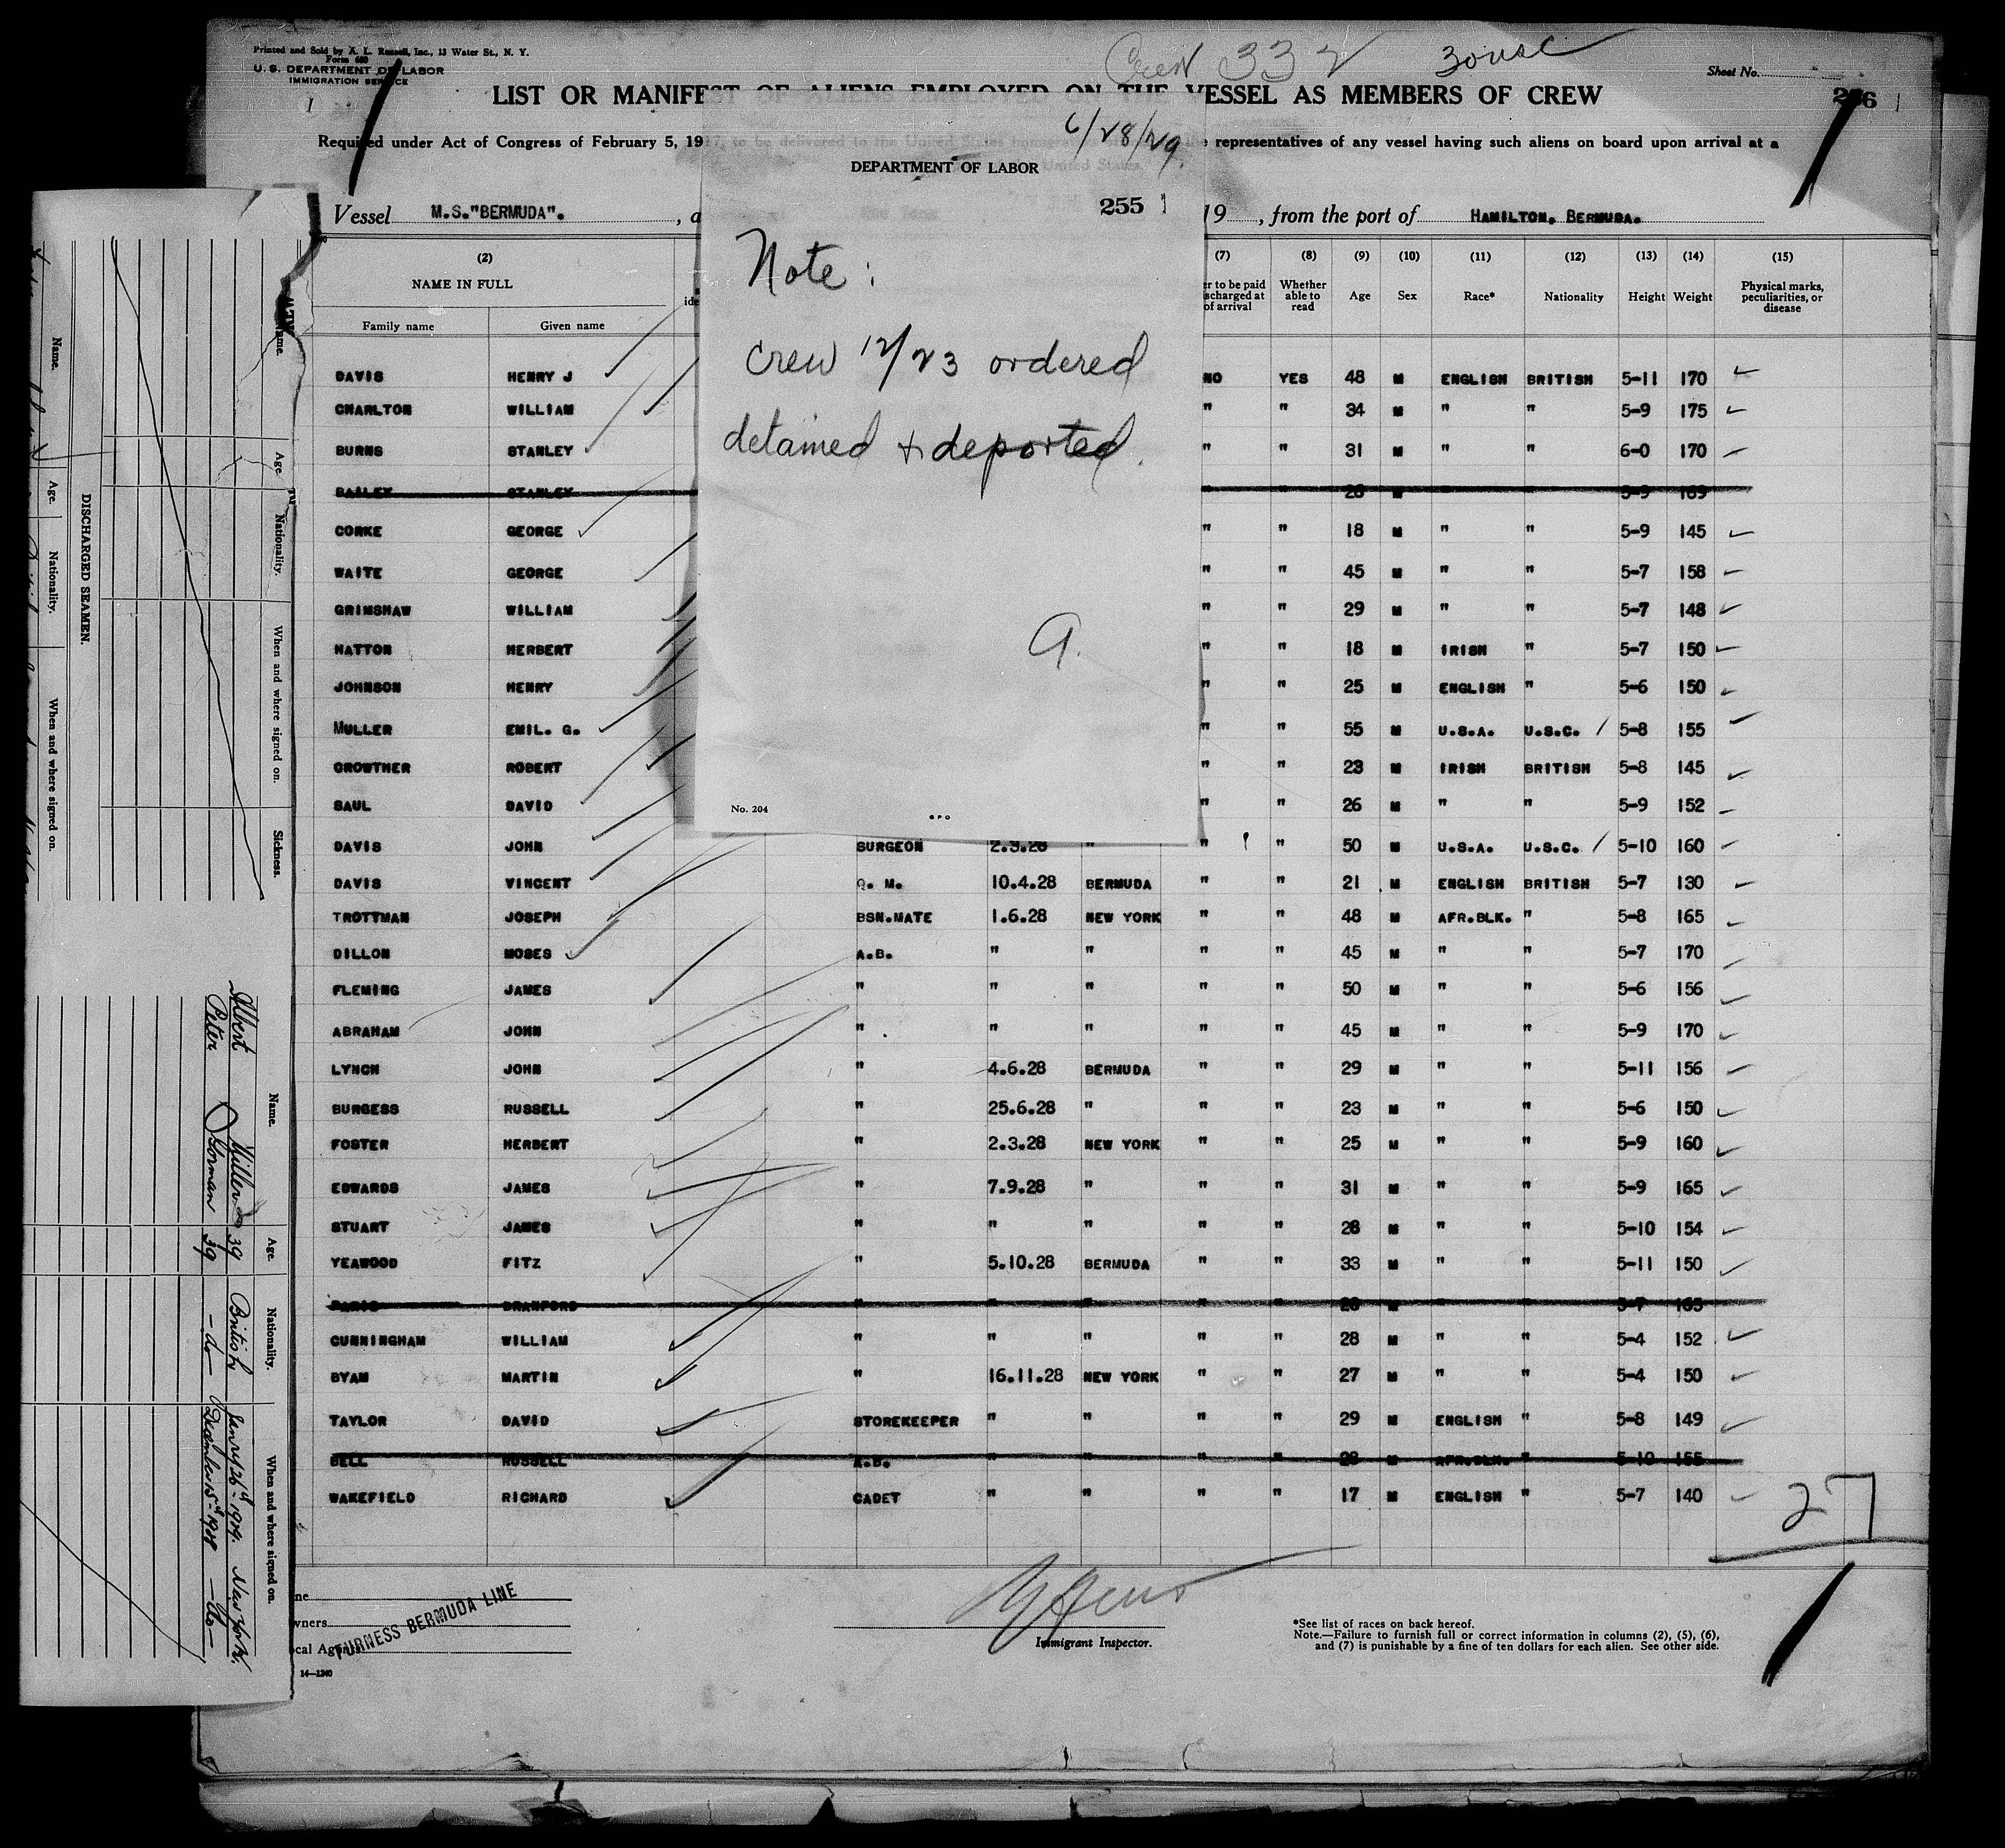 Printed and Sold by A. L. Russell, Inc., 13 Water St., N. Y.
Form 680
U. S. DEPARTMENT OF LABOR
IMMIGRATION SERVICE
Crew 332
30 usc
Sheet No.
LIST OR MANIFEST OF ALIENS EMPLOYED ON THE VESSEL AS MEMBERS OF CREW
Required under Act of Congress of February 5, 1917, to be delivered to the United States representatives of any vessel having such aliens on board upon arrival at a
6/28/29.
DEPARTMENT OF LABOR
255
Note:
Crew 12/23 ordered
detained + deported.
No. 204
GPO
Vessel M.S."BERMUDA". , a 19 , from the port of HAMILTON, BERMUDA.
(2) (7) (8) (9) (10) (11) (12) (13) (14) (15)
NAME IN FULL
Family name Given name
Whether able to read Age Sex Race* Nationality Height Weight Physical marks, peculiarities, or disease
DAVIS HENRY J NO YES 48 M ENGLISH BRITISH 5-11 170
CHARLTON WILLIAM " " 34 M " " 5-9 175
BURNS STANLEY " " 31 M " " 6-0 170
BAILEY STANLEY " " 26 M " " 5-9 169
CORKE GEORGE " " 18 M " " 5-9 145
WAITE GEORGE " " 45 M " " 5-7 158
GRIMSHAW WILLIAM " " 29 M " " 5-7 148
HATTON HERBERT " " 18 M IRISH " 5-7 150
JOHNSON HENRY " " 25 M ENGLISH " 5-6 150
MULLER EMIL. G. " " 55 M U.S.A. U.S.C. 5-8 155
CROWTHER ROBERT " " 23 M IRISH BRITISH 5-8 145
SAUL DAVID " " 26 M " " 5-9 152
DAVIS JOHN SURGEON 2.3.28 " " " 50 M U.S.A. U.S.C. 5-10 160
DAVIS VINCENT Q. M. 10.4.28 BERMUDA " " 21 M ENGLISH BRITISH 5-7 130
TROTTMAN JOSEPH BSN.MATE 1.6.28 NEW YORK " " 48 M AFR.BLK. " 5-8 165
DILLON MOSES A.B. " " " " 45 M " " 5-7 170
FLEMING JAMES " " " " " 50 M " " 5-6 156
ABRAHAM JOHN " " " " " 45 M " " 5-9 170
LYNCH JOHN " 4.6.28 BERMUDA " " 29 M " " 5-11 156
BURGESS RUSSELL " 25.6.28 " " " 23 M " " 5-6 150
FOSTER HERBERT " 2.3.28 NEW YORK " " 25 M " " 5-9 160
EDWARDS JAMES " 7.9.28 " " " 31 M " " 5-9 165
STUART JAMES " " " " " 28 M " " 5-10 154
YEAWOOD FITZ " 5.10.28 BERMUDA " " 33 M " " 5-11 150
PARIS BRANFORD " " " " " 28 M " " 5-7 165
CUNNINGHAM WILLIAM " " " " " 28 M " " 5-4 152
BYAM MARTIN " 16.11.28 NEW YORK " " 27 M " " 5-4 150
TAYLOR DAVID STOREKEEPER " " " " 29 M ENGLISH " 5-8 149
BELL RUSSELL A.B. " " " " 28 M AFR.BLK. " 5-10 155
WAKEFIELD RICHARD CADET " " " " 17 M ENGLISH " 5-7 140
27
FURNESS BERMUDA LINE
Immigrant Inspector.
*See list of races on back hereof.
Note.—Failure to furnish full or correct information in columns (2), (5), (6),
and (7) is punishable by a fine of ten dollars for each alien. See other side.
14—1240
Name. Age. Nationality. When and where signed on. Sickness.
DISCHARGED SEAMEN.
Name. Age. Nationality. When and where signed on.
Name. Age. Nationality. When and where signed on.
Albert Miller 39 British New York.
Peter Gorman 39 -do- December 15th 1928 -do-